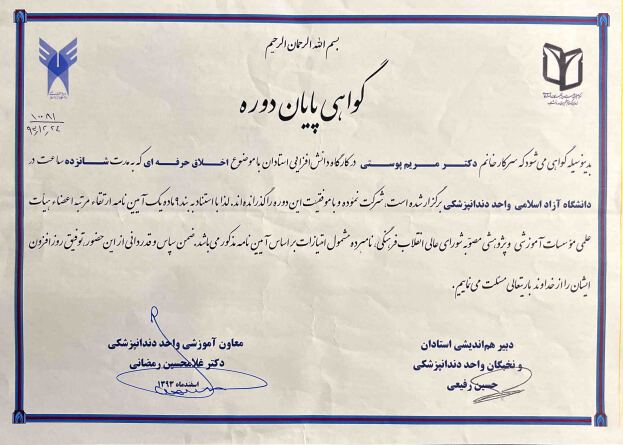 بسم الله الرحمان الرحیم
گواهی پایان دوره
۱۰۰۸۱
۹۴/۲/۲۴
بدینوسیله گواهی می شود که سرکار خانم دکتر مریم پوستی در کارگاه دانش افزایی استادان با موضوع اخلاق حرفه ای که به مدت شانزده ساعت در
دانشگاه آزاد اسلامی واحد دندانپزشکی برگزار شده است، شرکت نموده و با موفقیت این دوره را گذرانده اند، لذا با استناد به بند ۹ ماده یک آیین نامه ارتقاء مرتبه اعضاء هیأت
علمی مؤسسات آموزشی و پژوهشی مصوبه شورای عالی انقلاب فرهنگی، نامبرده مشمول امتیازات بر اساس آیین نامه مذکور می باشد. ضمن سپاس و قدردانی از این حضور، توفیق روز افزون
ایشان را از خداوند باریتعالی مسئلت می نماییم.
معاون آموزشی واحد دندانپزشکی
دکتر غلامحسین رمضانی
اسفندماه ۱۳۹۳
دبیر هم‌اندیشی استادان
و نخبگان واحد دندانپزشکی
حسین رفیعی